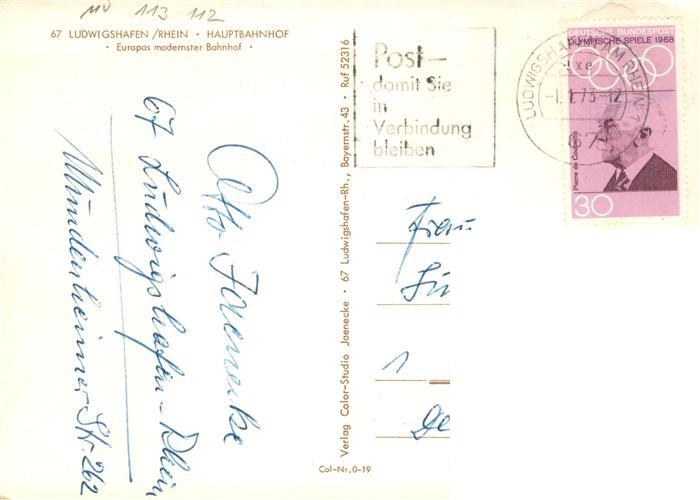 MV 113 112
67 LUDWIGSHAFEN /RHEIN • HAUPTBAHNHOF
• Europas modernster Bahnhof •
Otto Jaenecke
67 Ludwigshafen-Rhein
Mundenheimer Str. 262
Verlag Color-Studio Jaenecke • 67 Ludwigshafen-Rh., Bayernstr. 43 • Ruf 52316
Col-Nr. 0-19
Post—
damit Sie
in
Verbindung
bleiben
LUDWIGSHAFEN AM RHEIN 1
-1.1.73-12
67
DEUTSCHE BUNDESPOST
OLYMPISCHE SPIELE 1968
Pierre de Coubertin
30
Frau
1